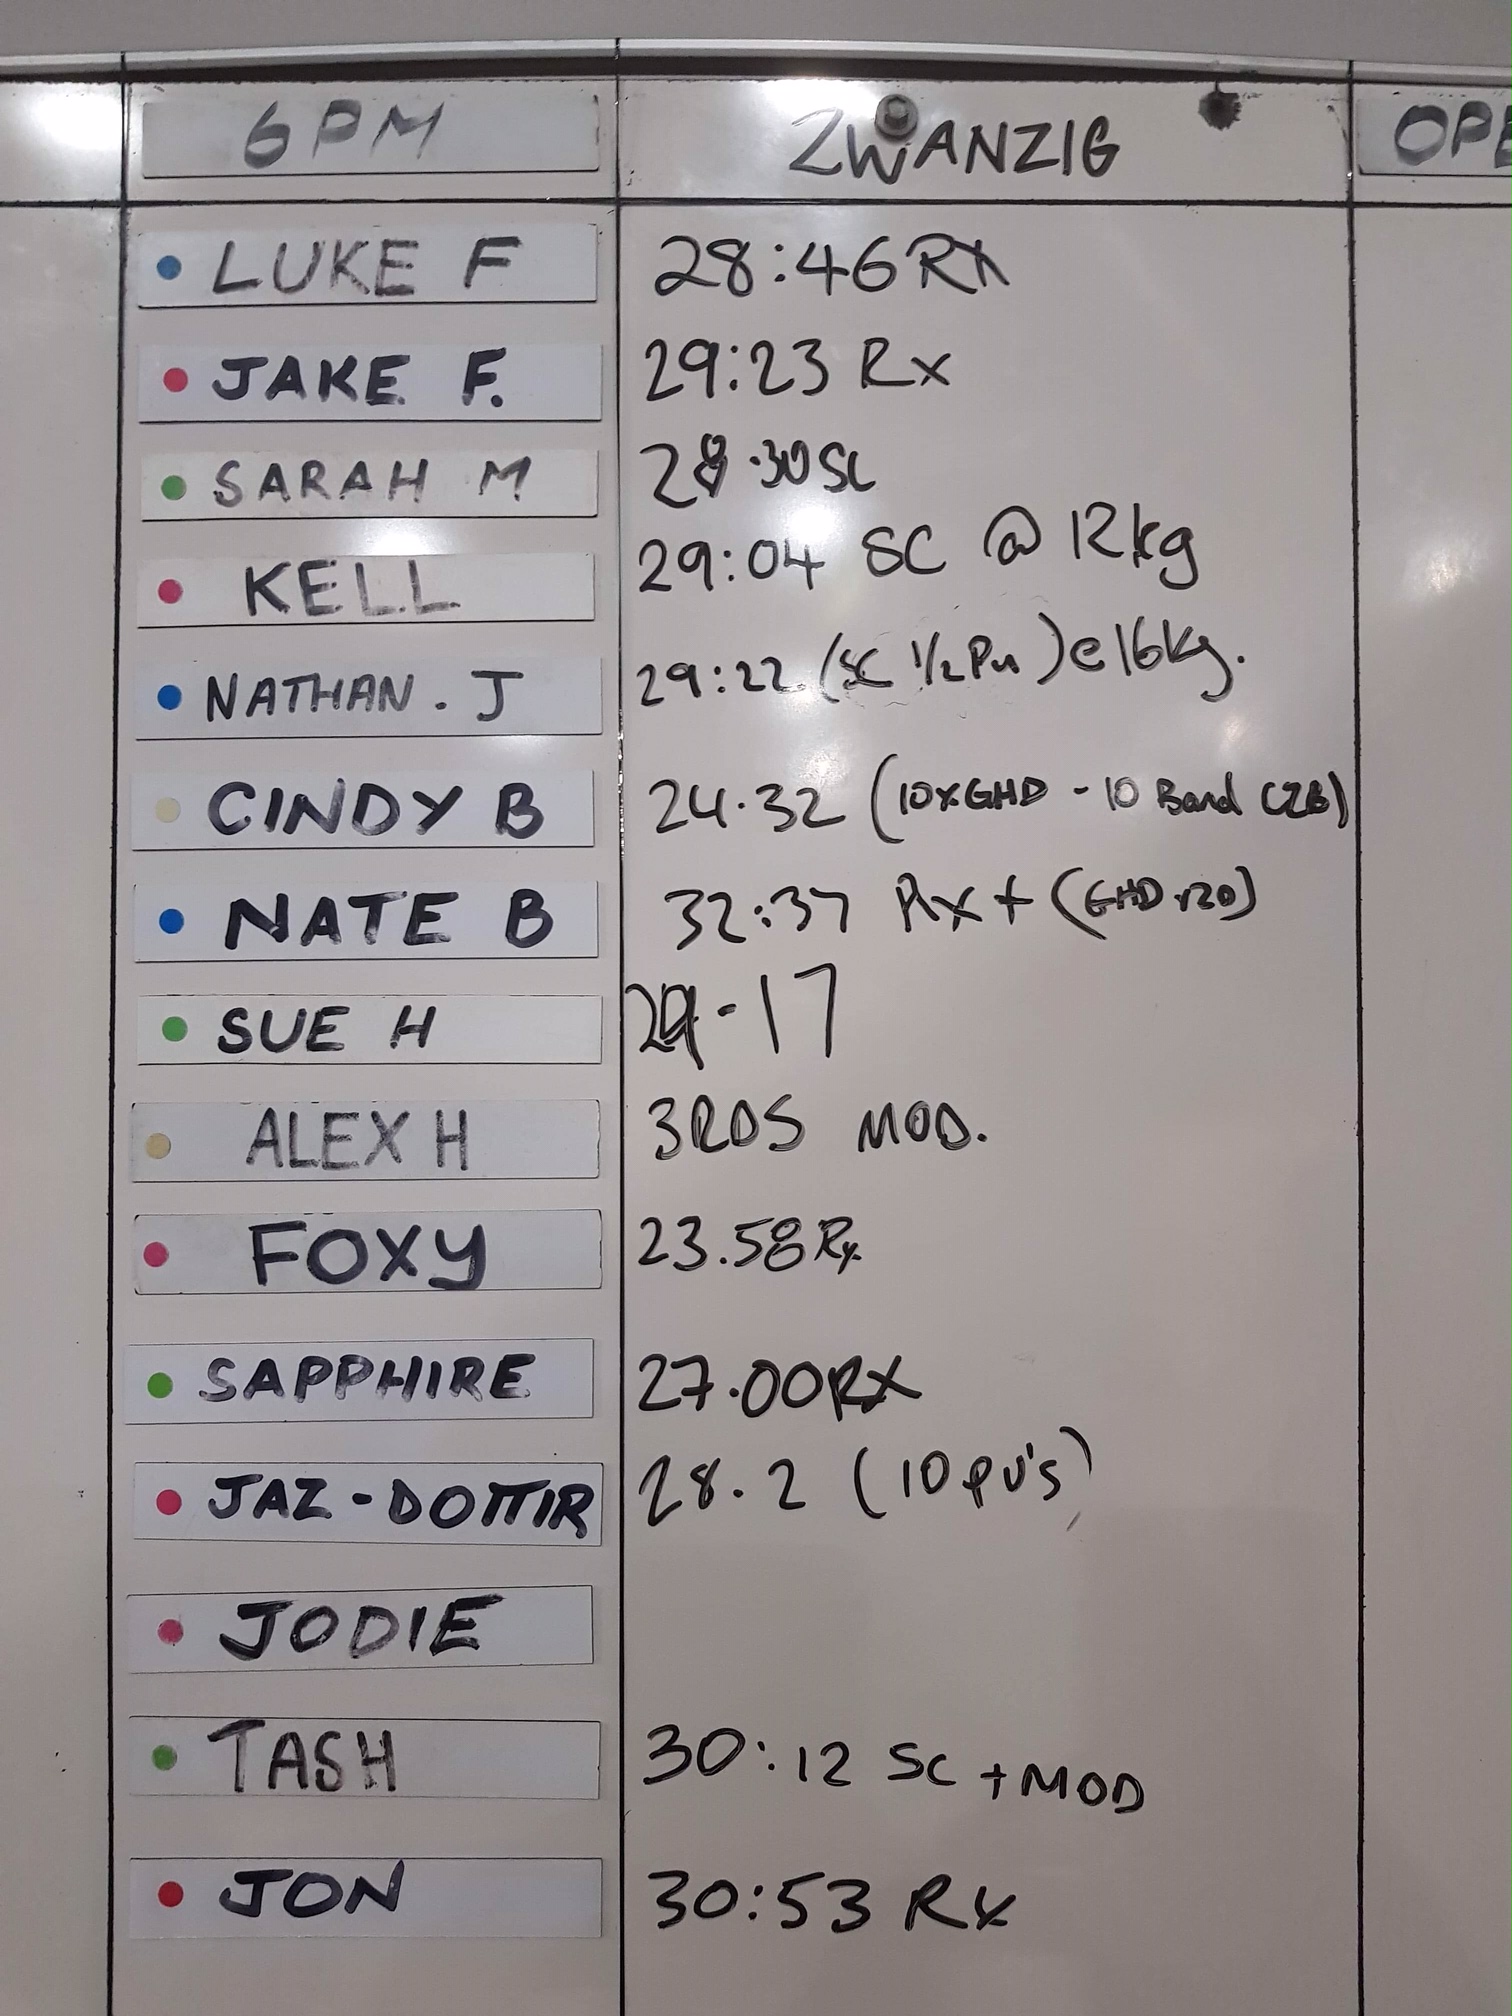 6PM ZWANZIG OPE
LUKE F 28:46 RX
JAKE F. 29:23 Rx
SARAH M 28.30 SC
KELL 29:04 SC @ 12kg
NATHAN . J 29:22 (SC 1/2 Pu) @ 16kg.
CINDY B 24.32 (10xGHD - 10 Band C2B)
NATE B 32:37 Rx + (GHD x20)
SUE H 29-17
ALEX H 3RDS MOD.
FOXY 23.58 Rx
SAPPHIRE 27.00 RX
JAZ-DOTTIR 28.2 (10 PU's)
JODIE
TASH 30:12 SC + MOD
JON 30:53 Rx